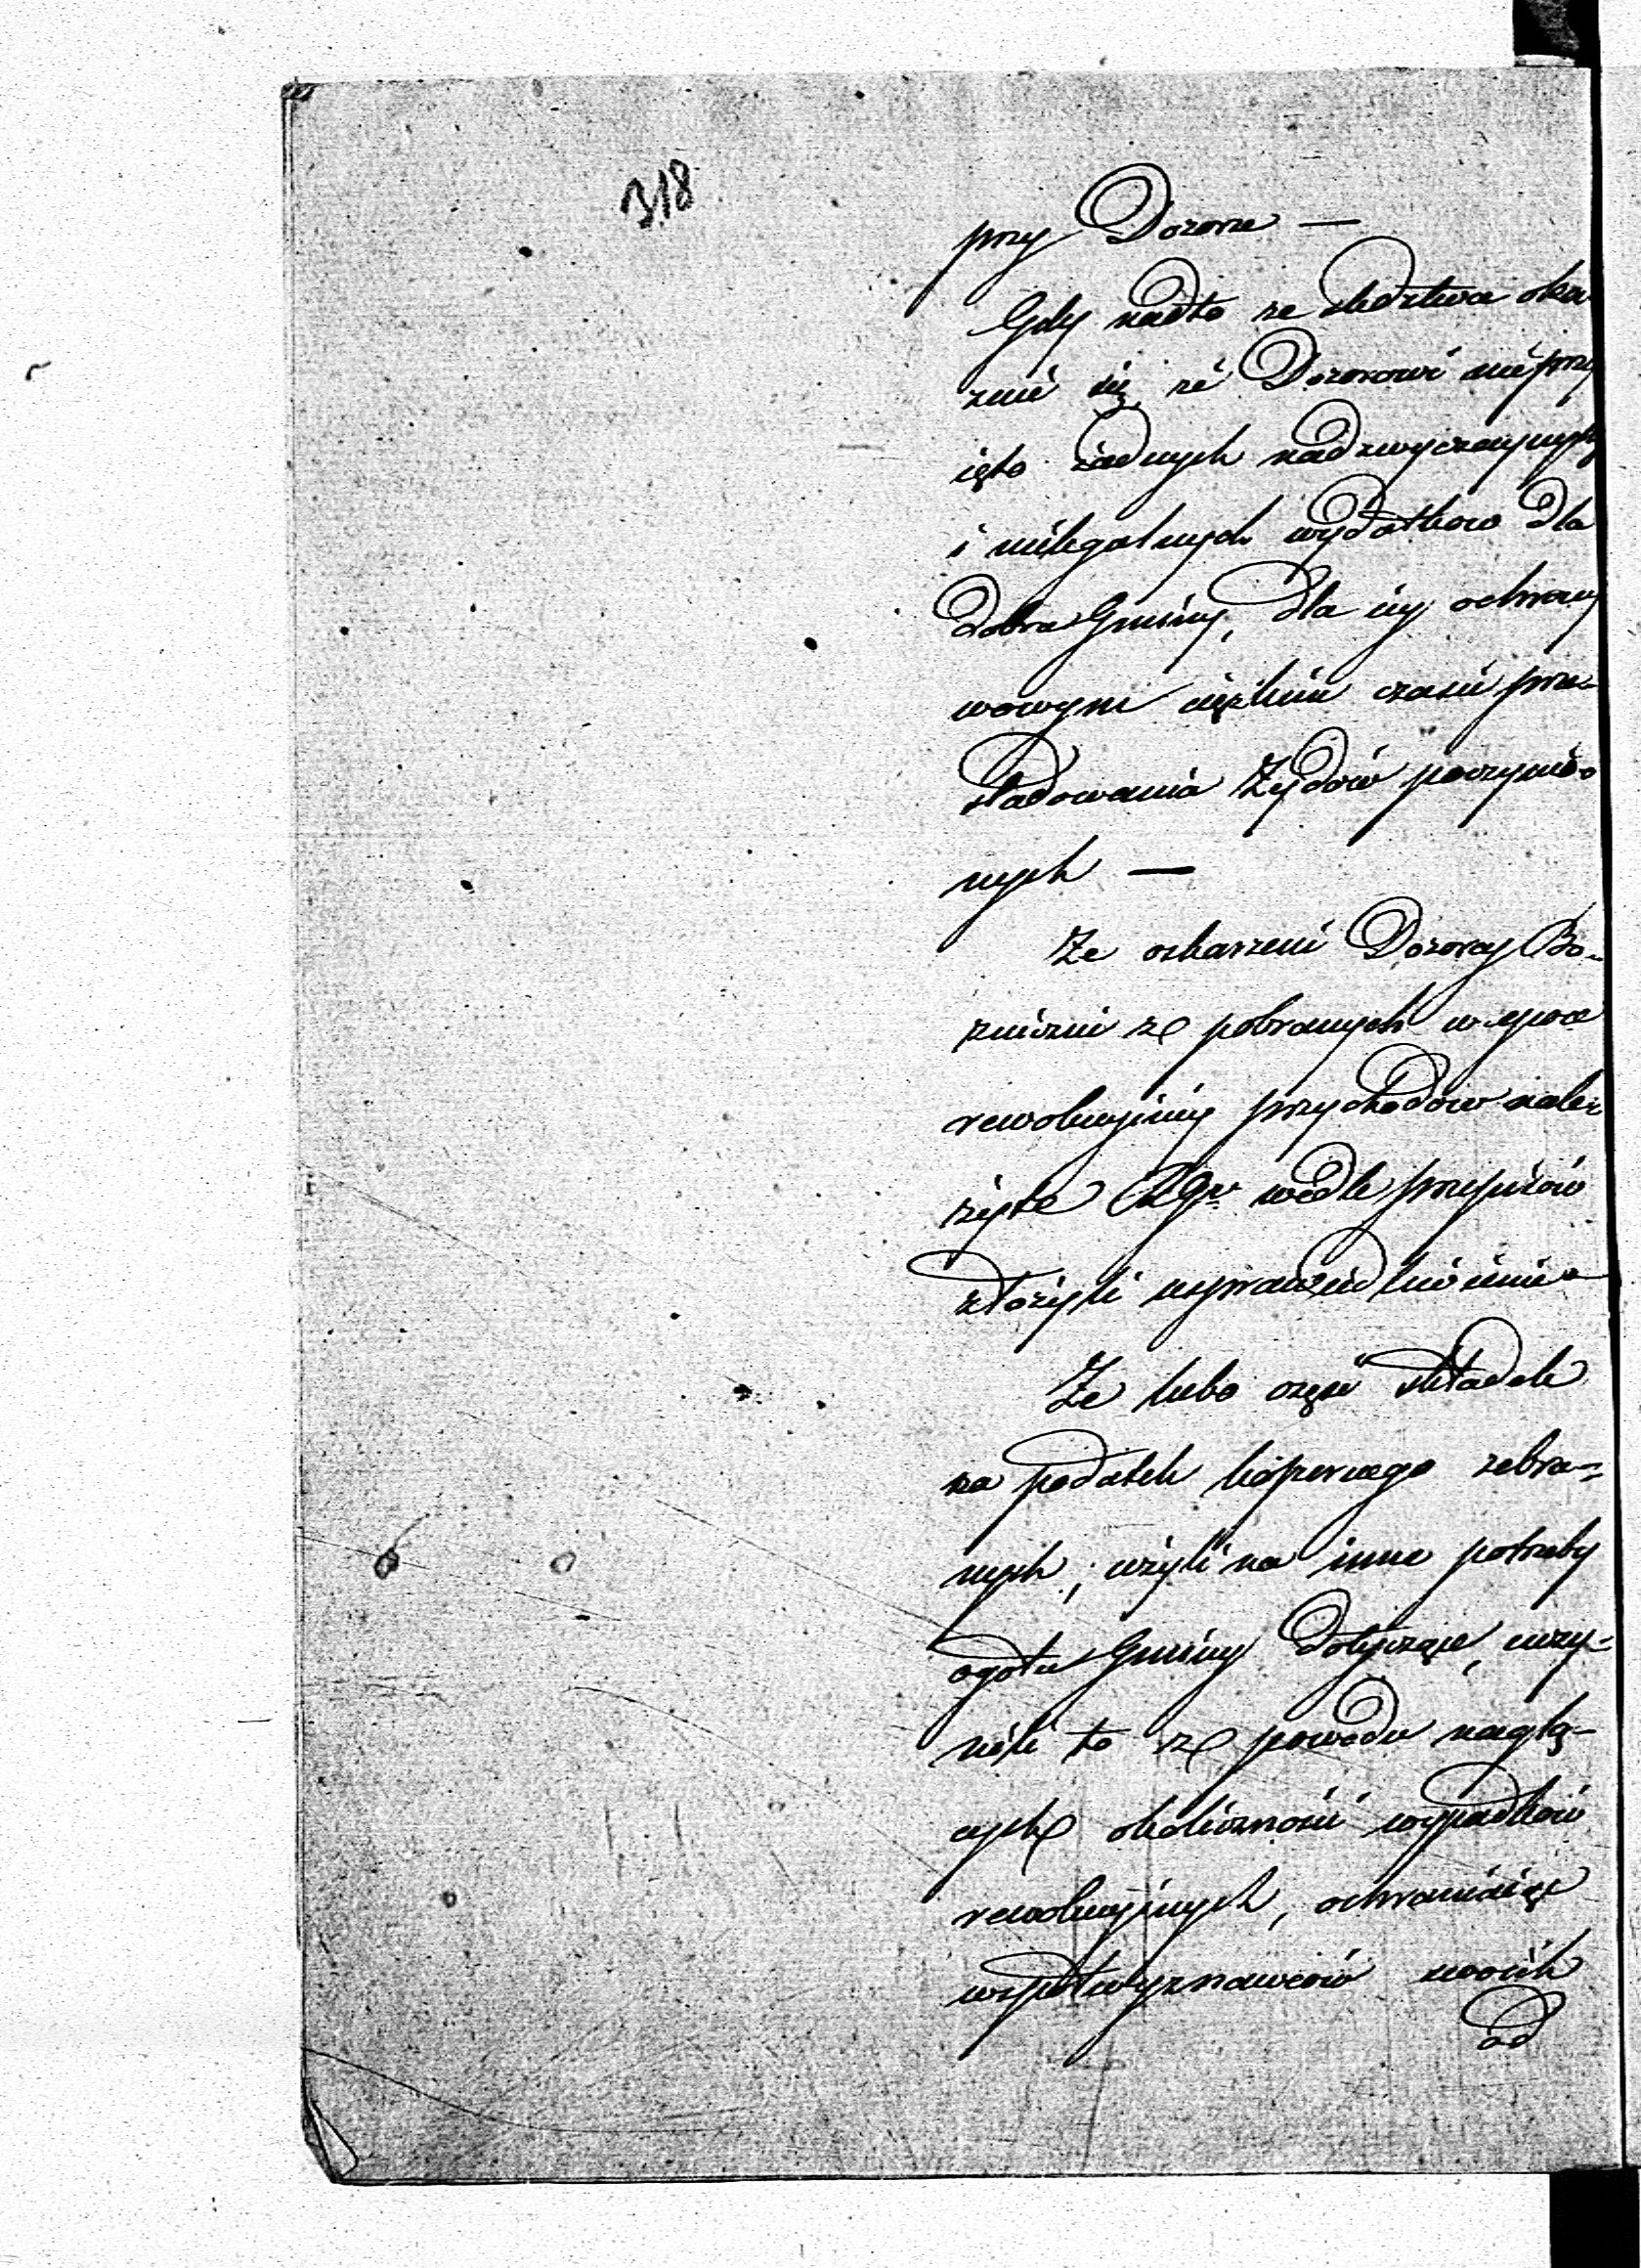 318
przy Dozorze —
Gdy nadto ze śledztwa oka
zuie się, że Dozorowi nieprzy
ięto żadnych nadzwyczaynych
i nielegalnych wydatkow dla
dobra Gminy, dla iey ochrony
wowym ciężkim czasie prze-
sladowania Żydów poczynio-
nych —
Że oskarzeni Dozorcy Bo-
zniczni ze pobranych w epoce
rewolucyiney przychodow nale-
życie wedle przepisów
złożyli usprawiedliwienie
Że lubo część składek
na podatek koszernego zebra-
nych, użyli na inne potrzeby
ogołu Gminy dotyczące, uczy-
nili to z powodu naglą-
cych okoliczności wypadków
rewolucyinych, ochraniaiąc
wspołwyznawców swoich
od